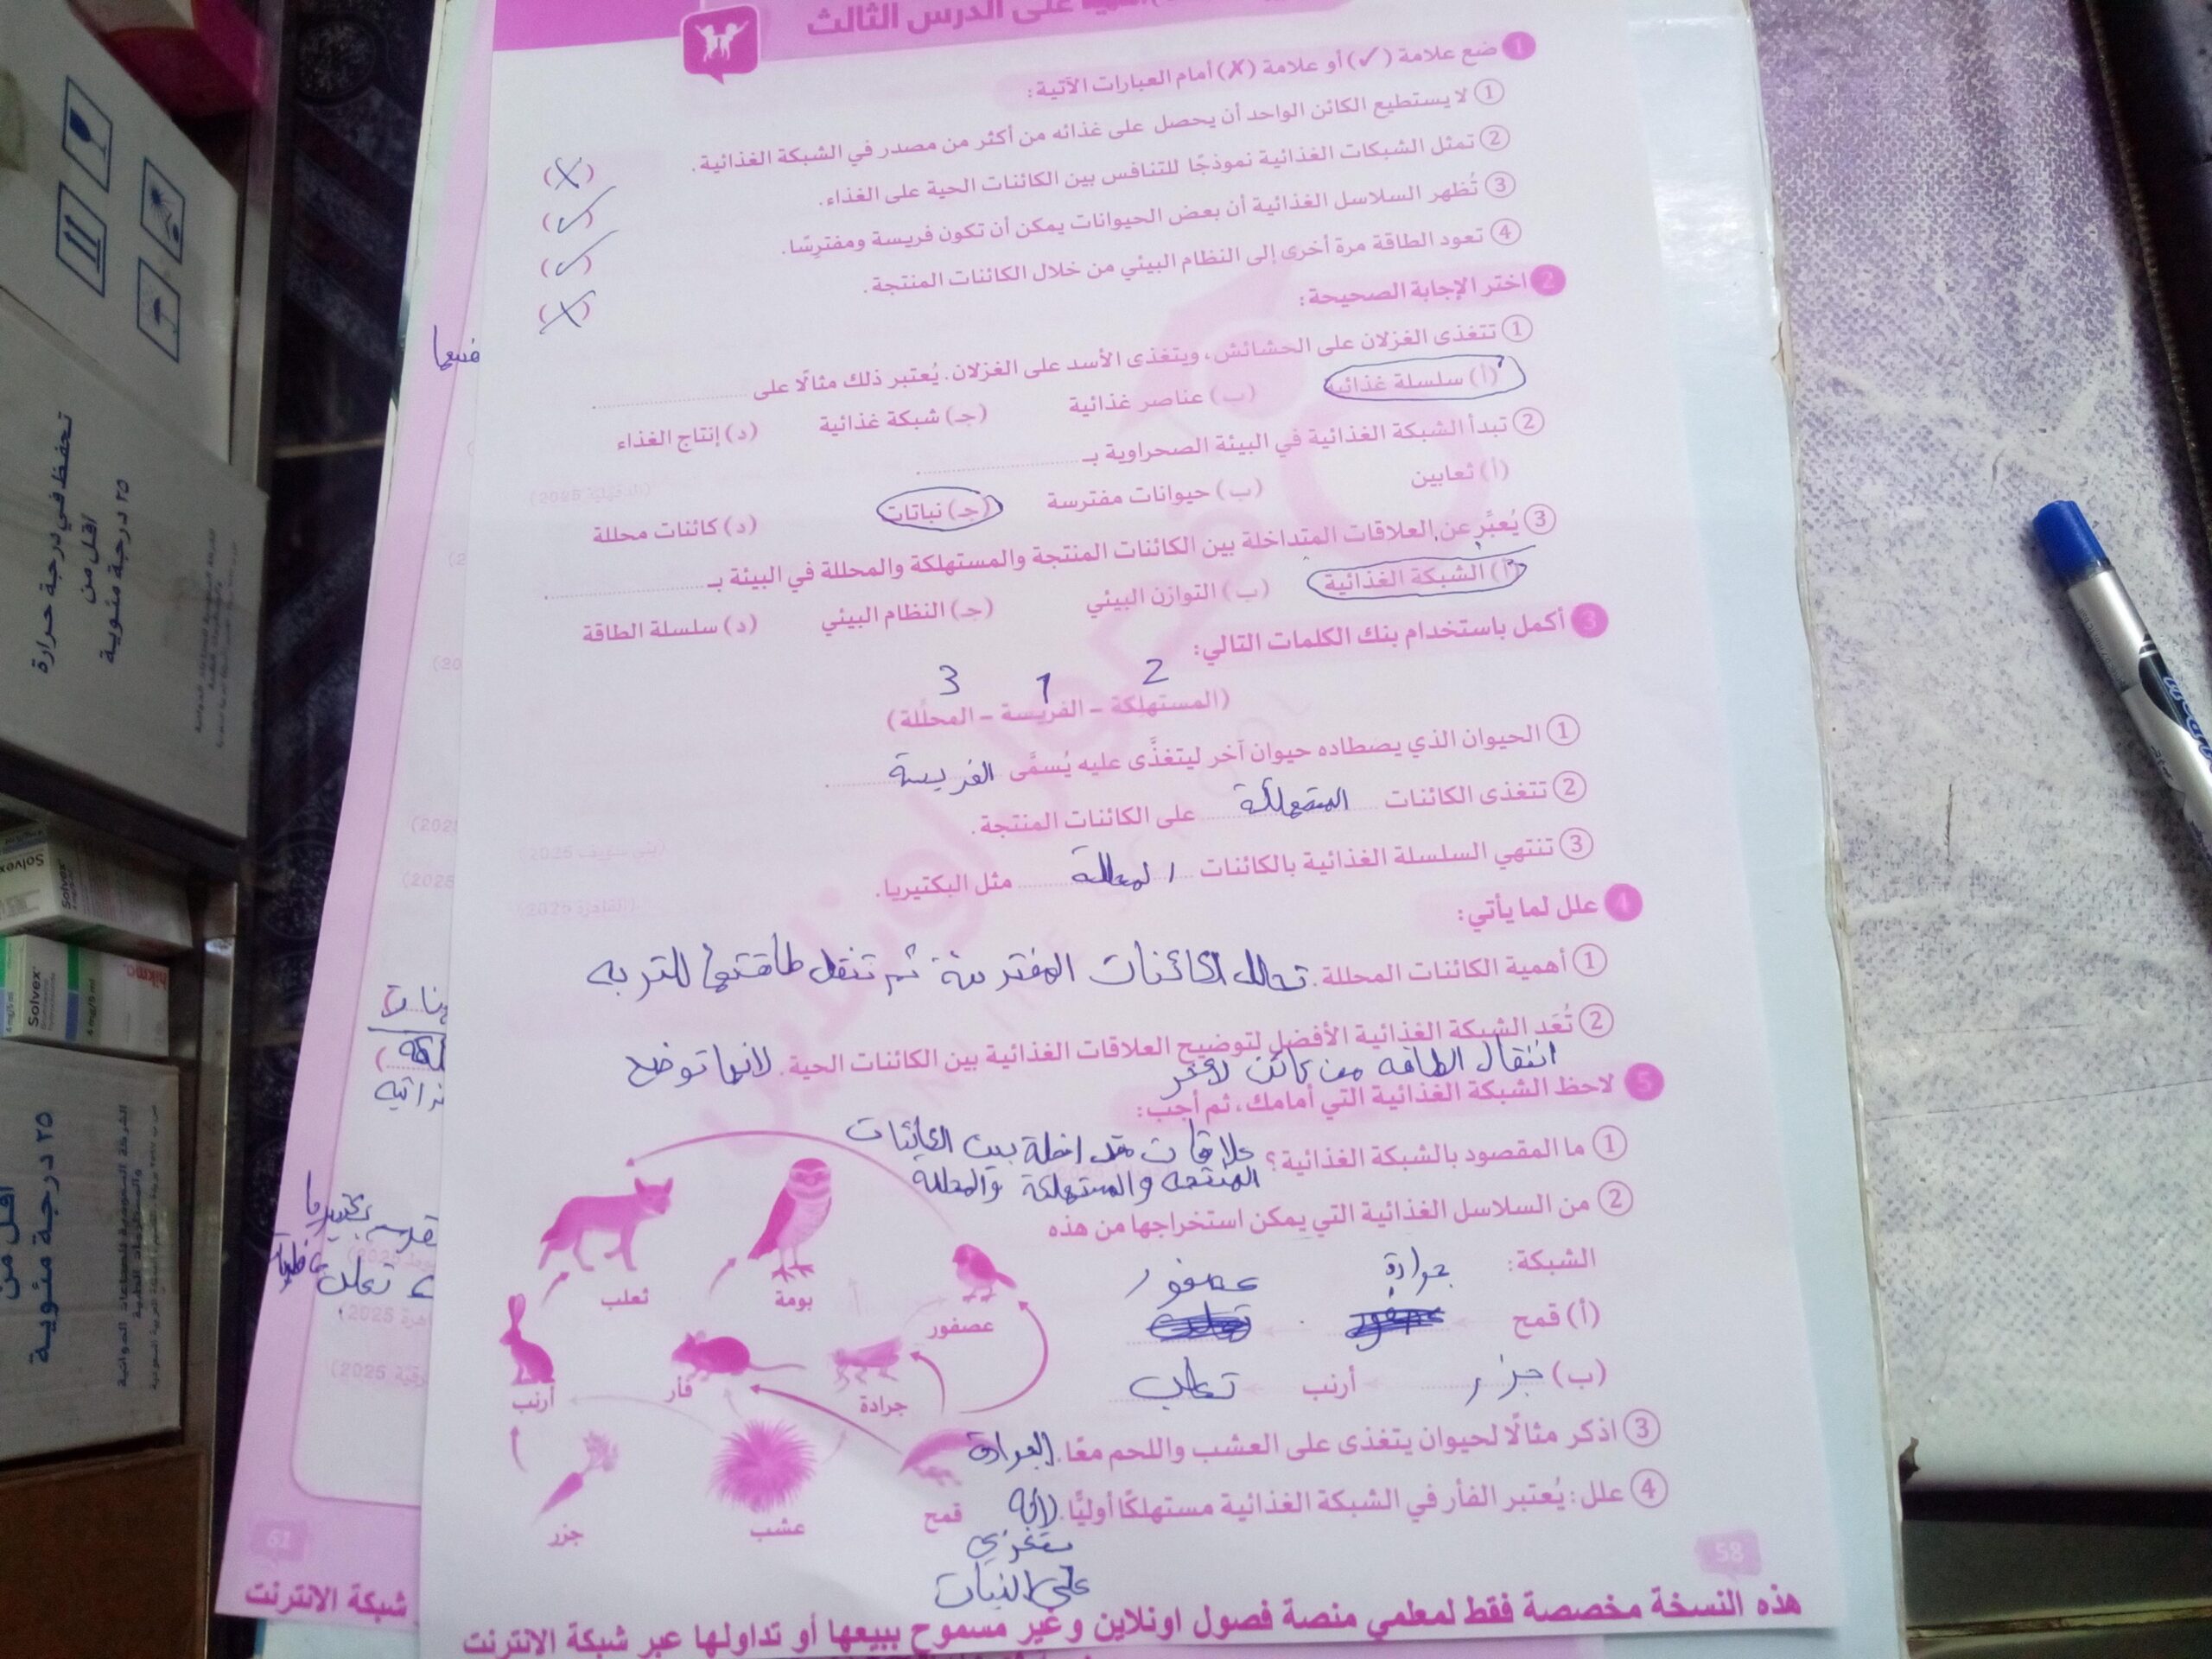 على الدرس الثالث
1 ضع علامة (✓) أو علامة (✗) أمام العبارات الآتية:
① لا يستطيع الكائن الواحد أن يحصل على غذائه من أكثر من مصدر في الشبكة الغذائية. (X)
② تمثل الشبكات الغذائية نموذجًا للتنافس بين الكائنات الحية على الغذاء. (✓)
③ تُظهر السلاسل الغذائية أن بعض الحيوانات يمكن أن تكون فريسة ومفترسًا. (✓)
④ تعود الطاقة مرة أخرى إلى النظام البيئي من خلال الكائنات المنتجة. (X)
2 اختر الإجابة الصحيحة:
① تتغذى الغزلان على الحشائش، ويتغذى الأسد على الغزلان. يُعتبر ذلك مثالًا على
(أ) سلسلة غذائية (ب) عناصر غذائية (جـ) شبكة غذائية (د) إنتاج الغذاء
② تبدأ الشبكة الغذائية في البيئة الصحراوية بـ
(أ) ثعابين (ب) حيوانات مفترسة (جـ) نباتات (د) كائنات محللة
③ يُعبَّر عن العلاقات المتداخلة بين الكائنات المنتجة والمستهلكة والمحللة في البيئة بـ
(أ) الشبكة الغذائية (ب) التوازن البيئي (جـ) النظام البيئي (د) سلسلة الطاقة
3 أكمل باستخدام بنك الكلمات التالي:
2 1 3
(المستهلكة – الفريسة – المحللة)
① الحيوان الذي يصطاده حيوان آخر ليتغذَّى عليه يُسمَّى الفريسة
② تتغذى الكائنات المتهلكة على الكائنات المنتجة.
③ تنتهي السلسلة الغذائية بالكائنات المحللة مثل البكتيريا.
4 علل لما يأتي:
① أهمية الكائنات المحللة. تحلل الكائنات المفترسة ثم تنقل طاقتها للتربه
② تُعَد الشبكة الغذائية الأفضل لتوضيح العلاقات الغذائية بين الكائنات الحية. لانها توضح
انتقال الطاقه من كائن لاخر
5 لاحظ الشبكة الغذائية التي أمامك، ثم أجب:
① ما المقصود بالشبكة الغذائية؟ علاقات متداخلة بين الكائنات
المنتجه والمستهلكة والمحللة
② من السلاسل الغذائية التي يمكن استخراجها من هذه
الشبكة: جرادة عصفور
(أ) قمح
(ب) جزر أرنب ثعلب
③ اذكر مثالًا لحيوان يتغذى على العشب واللحم معًا. الجرادة
④ علل: يُعتبر الفأر في الشبكة الغذائية مستهلكًا أوليًّا. لانه
يتغذى
على النبات
ثعلب
بومة
عصفور
أرنب
فأر
جرادة
جزر
عشب
قمح
58
هذه النسخة مخصصة فقط لمعلمي منصة فصول اونلاين وغير مسموح ببيعها أو تداولها عبر شبكة الانترنت
61
شبكة الانترنت
تحفظ في درجة حرارة
أقل من
٢٥ درجة مئوية
Solvex
Solvex
4 mg/5 ml
hikma.
أقل من
٢٥ درجة مئوية